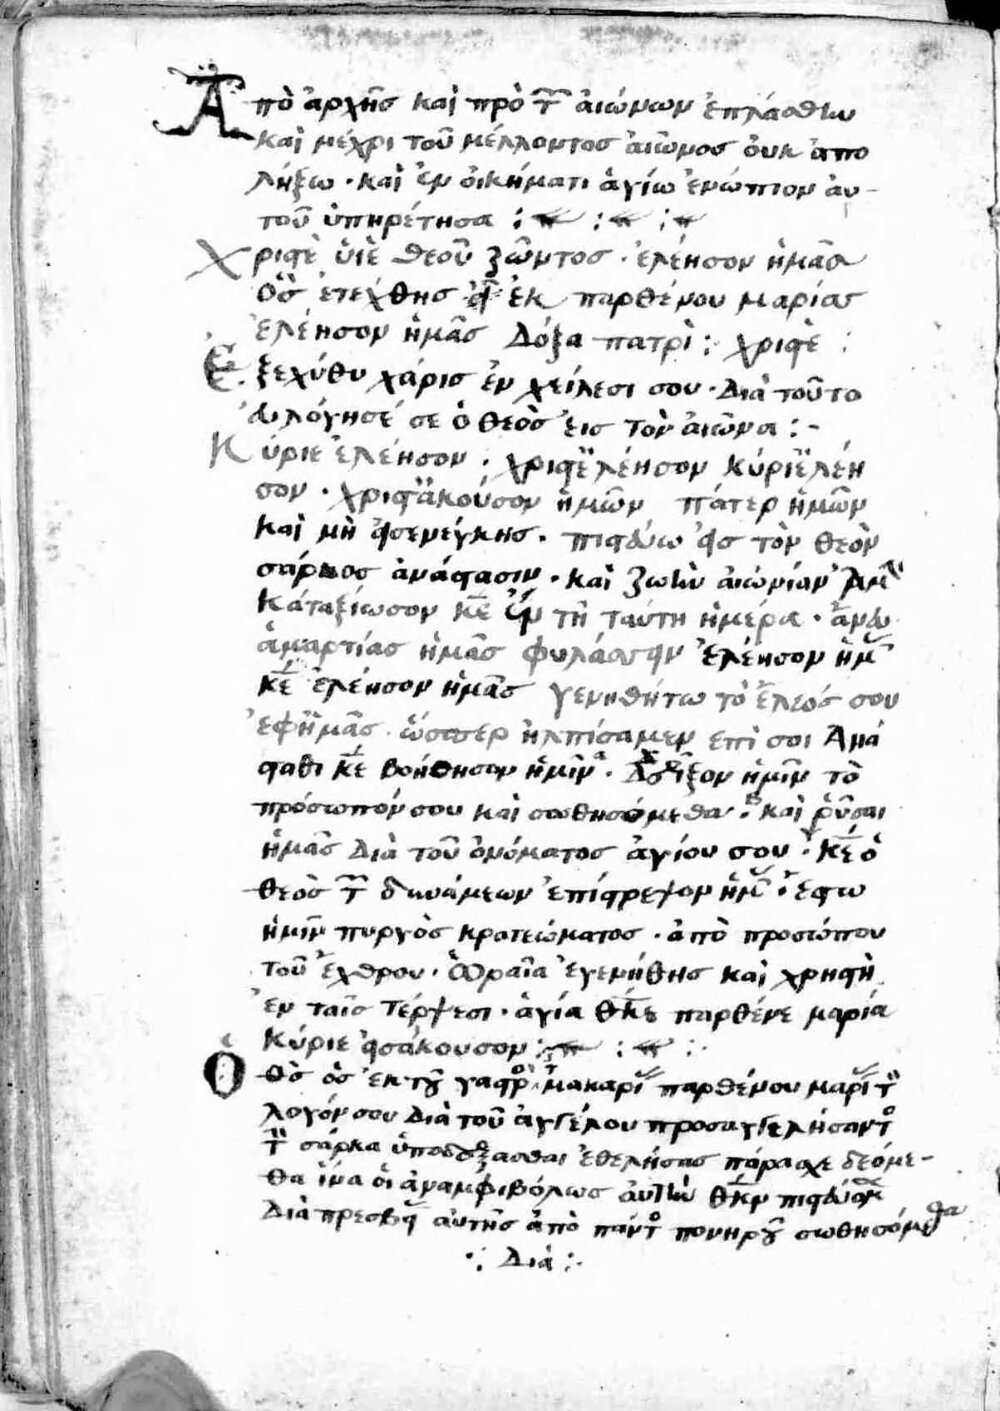 Ἀπὸ ἀρχῆς καὶ πρὸ τῶν αἰώνων ἐπλάσθην
καὶ μέχρι τοῦ μέλλοντος αἰῶνος οὐκ ἀπο
λήξω · καὶ ἐν οἰκήματι ἁγίω ἐνώπιον αὐ-
τοῦ ὑπηρέτησα :
Χριστὲ ὑιὲ θεοῦ ζῶντος · ἐλέησον ἡμᾶς
ὃς ἐτεχθης ἐκ παρθένου μαρίας
ἐλέησον ἡμᾶς Δόξα πατρὶ : χριστὲ :
Ἐξεχύθυ χάρις ἐν χείλεσι σου · Διὰ τοῦτο
ἐυλόγησέ σε ὁ θεὸς εἰς τὸν αἰῶνα : -
Κύριε ἐλέησον · χριστἐλέησον κύριἐλέη
σον · χριστἄκούσον ἡμῶν πάτερ ἡμῶν
καὶ μὴ εἰσενεγκης · πιστεύω εἰς τὸν θεὸν
σάρκος ἀνάστασιν · καὶ ζωὴν αἰωνίαν Ἀμ
Κάταξίωσον κε ἐν τῇ ταύτη ἡμέρα · ἄνευ
ἁμαρτίας ἡμᾶς φυλάσσειν ἐλέησον ἡμ
κε ἐλέησον ἡμᾶς γενηθήτω τὸ ἔλεός σου
ἐφἡμᾶς · ὥσπερ ἠλπίσαμεν ἐπὶ σοι Ἀνά
σταθι κε βοήθησον ἡμῖν · Δεῖξον ἡμῖν τὸ
πρόσωπόν σου καὶ σωθησόμεθα · καὶ ῥῦσαι
ἡμᾶς Διὰ τοῦ ὀνόματος ἁγίου σου · κε ὁ
θεὸς τῶν δυνάμεων ἐπίστρεψον ἡμ · ἔστω
ἡμῖν πυργὸς κρατεώματος · ἀπὸ προσώπου
τοῦ ἔχθρου · Ὡραῖα ἐγενήθης καὶ χρηστὴ
ἐν ταῖς τέρψεσι · ἁγία θκε παρθένε μαρία
Κύριε εἰσάκουσον :
Ὁ θὸς ὁς ἐκ τοῦ γαστρὸς μακαρί παρθένου μαρί τὸν
λογόν σου Διὰ τοῦ ἀγγέλου προσαγγελήσαντος
τὴν σάρκα ὑποδέξασθαι ἐθελήσας πάρασχε δεόμε-
θα ἵνα ὁι ἀναμφιβόλως αὐτὴν θκν πιστεύοντες
Διὰ πρεσβεί αὐτῆς ἀπὸ παντὸς πονηροῦ σωθησόμεθα
·: Διὰ :·